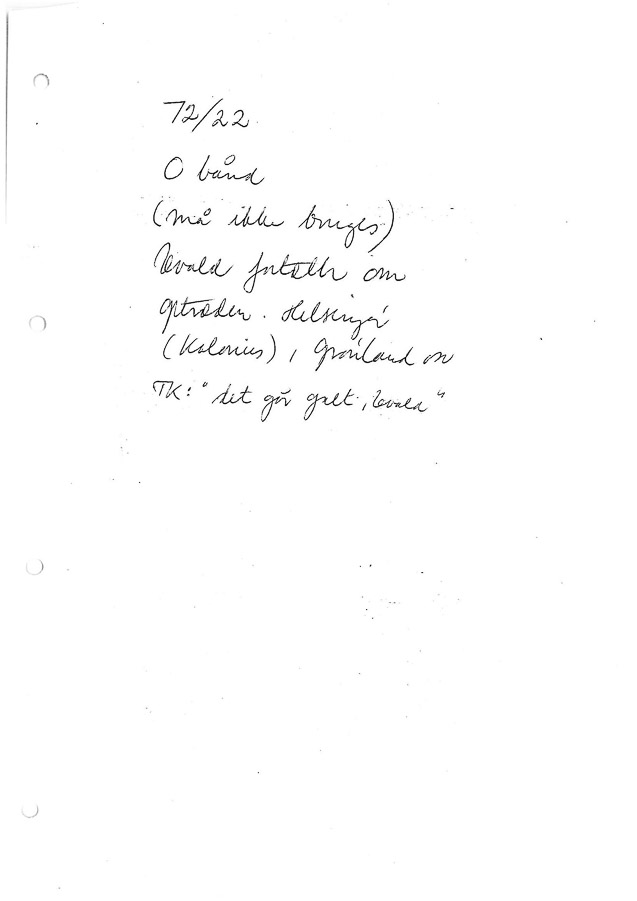 72/22
O bånd
(må ikke bruges)
Evald fortæller om
optræden. Helsingør
, Grønland om
TK: "det går galt, Evald"